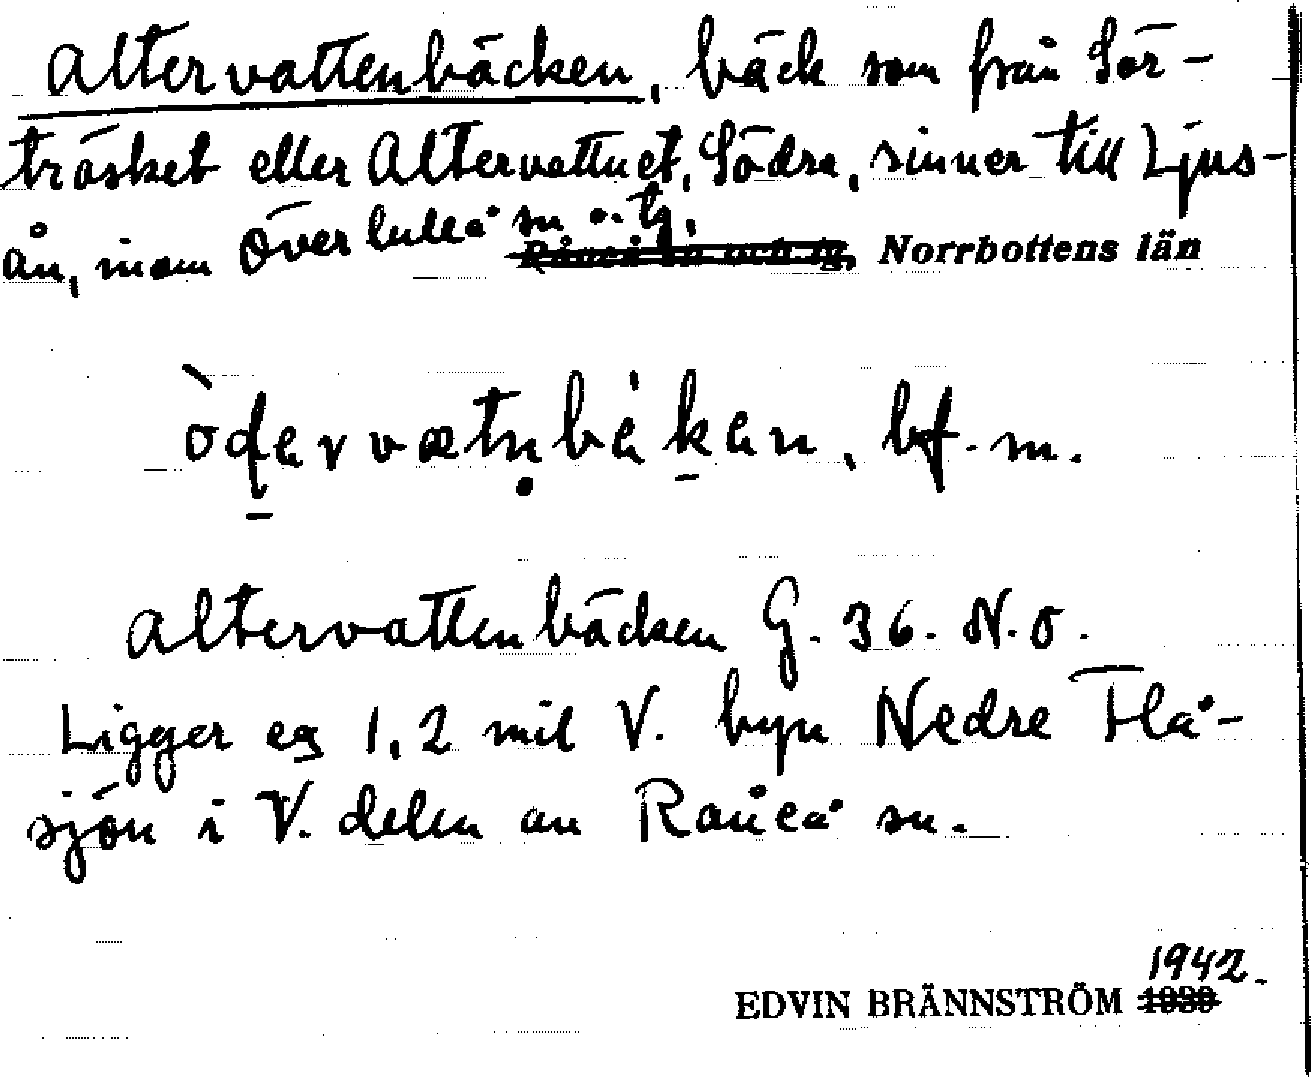 Altervattenbäcken, bäck som från Sör-
träsket eller Altervattnet, Södra, rinner till Ljus-
ån, inom Överluleå sn o. tg. Norrbottens län
altervattenbäcken G. 36. N.O.
Ligger c:a 1,2 mil V. byn Nedre Flå-
sjön i V. delen av Råneå sn.
1942.
EDVIN BRÄNNSTRÖM 1939